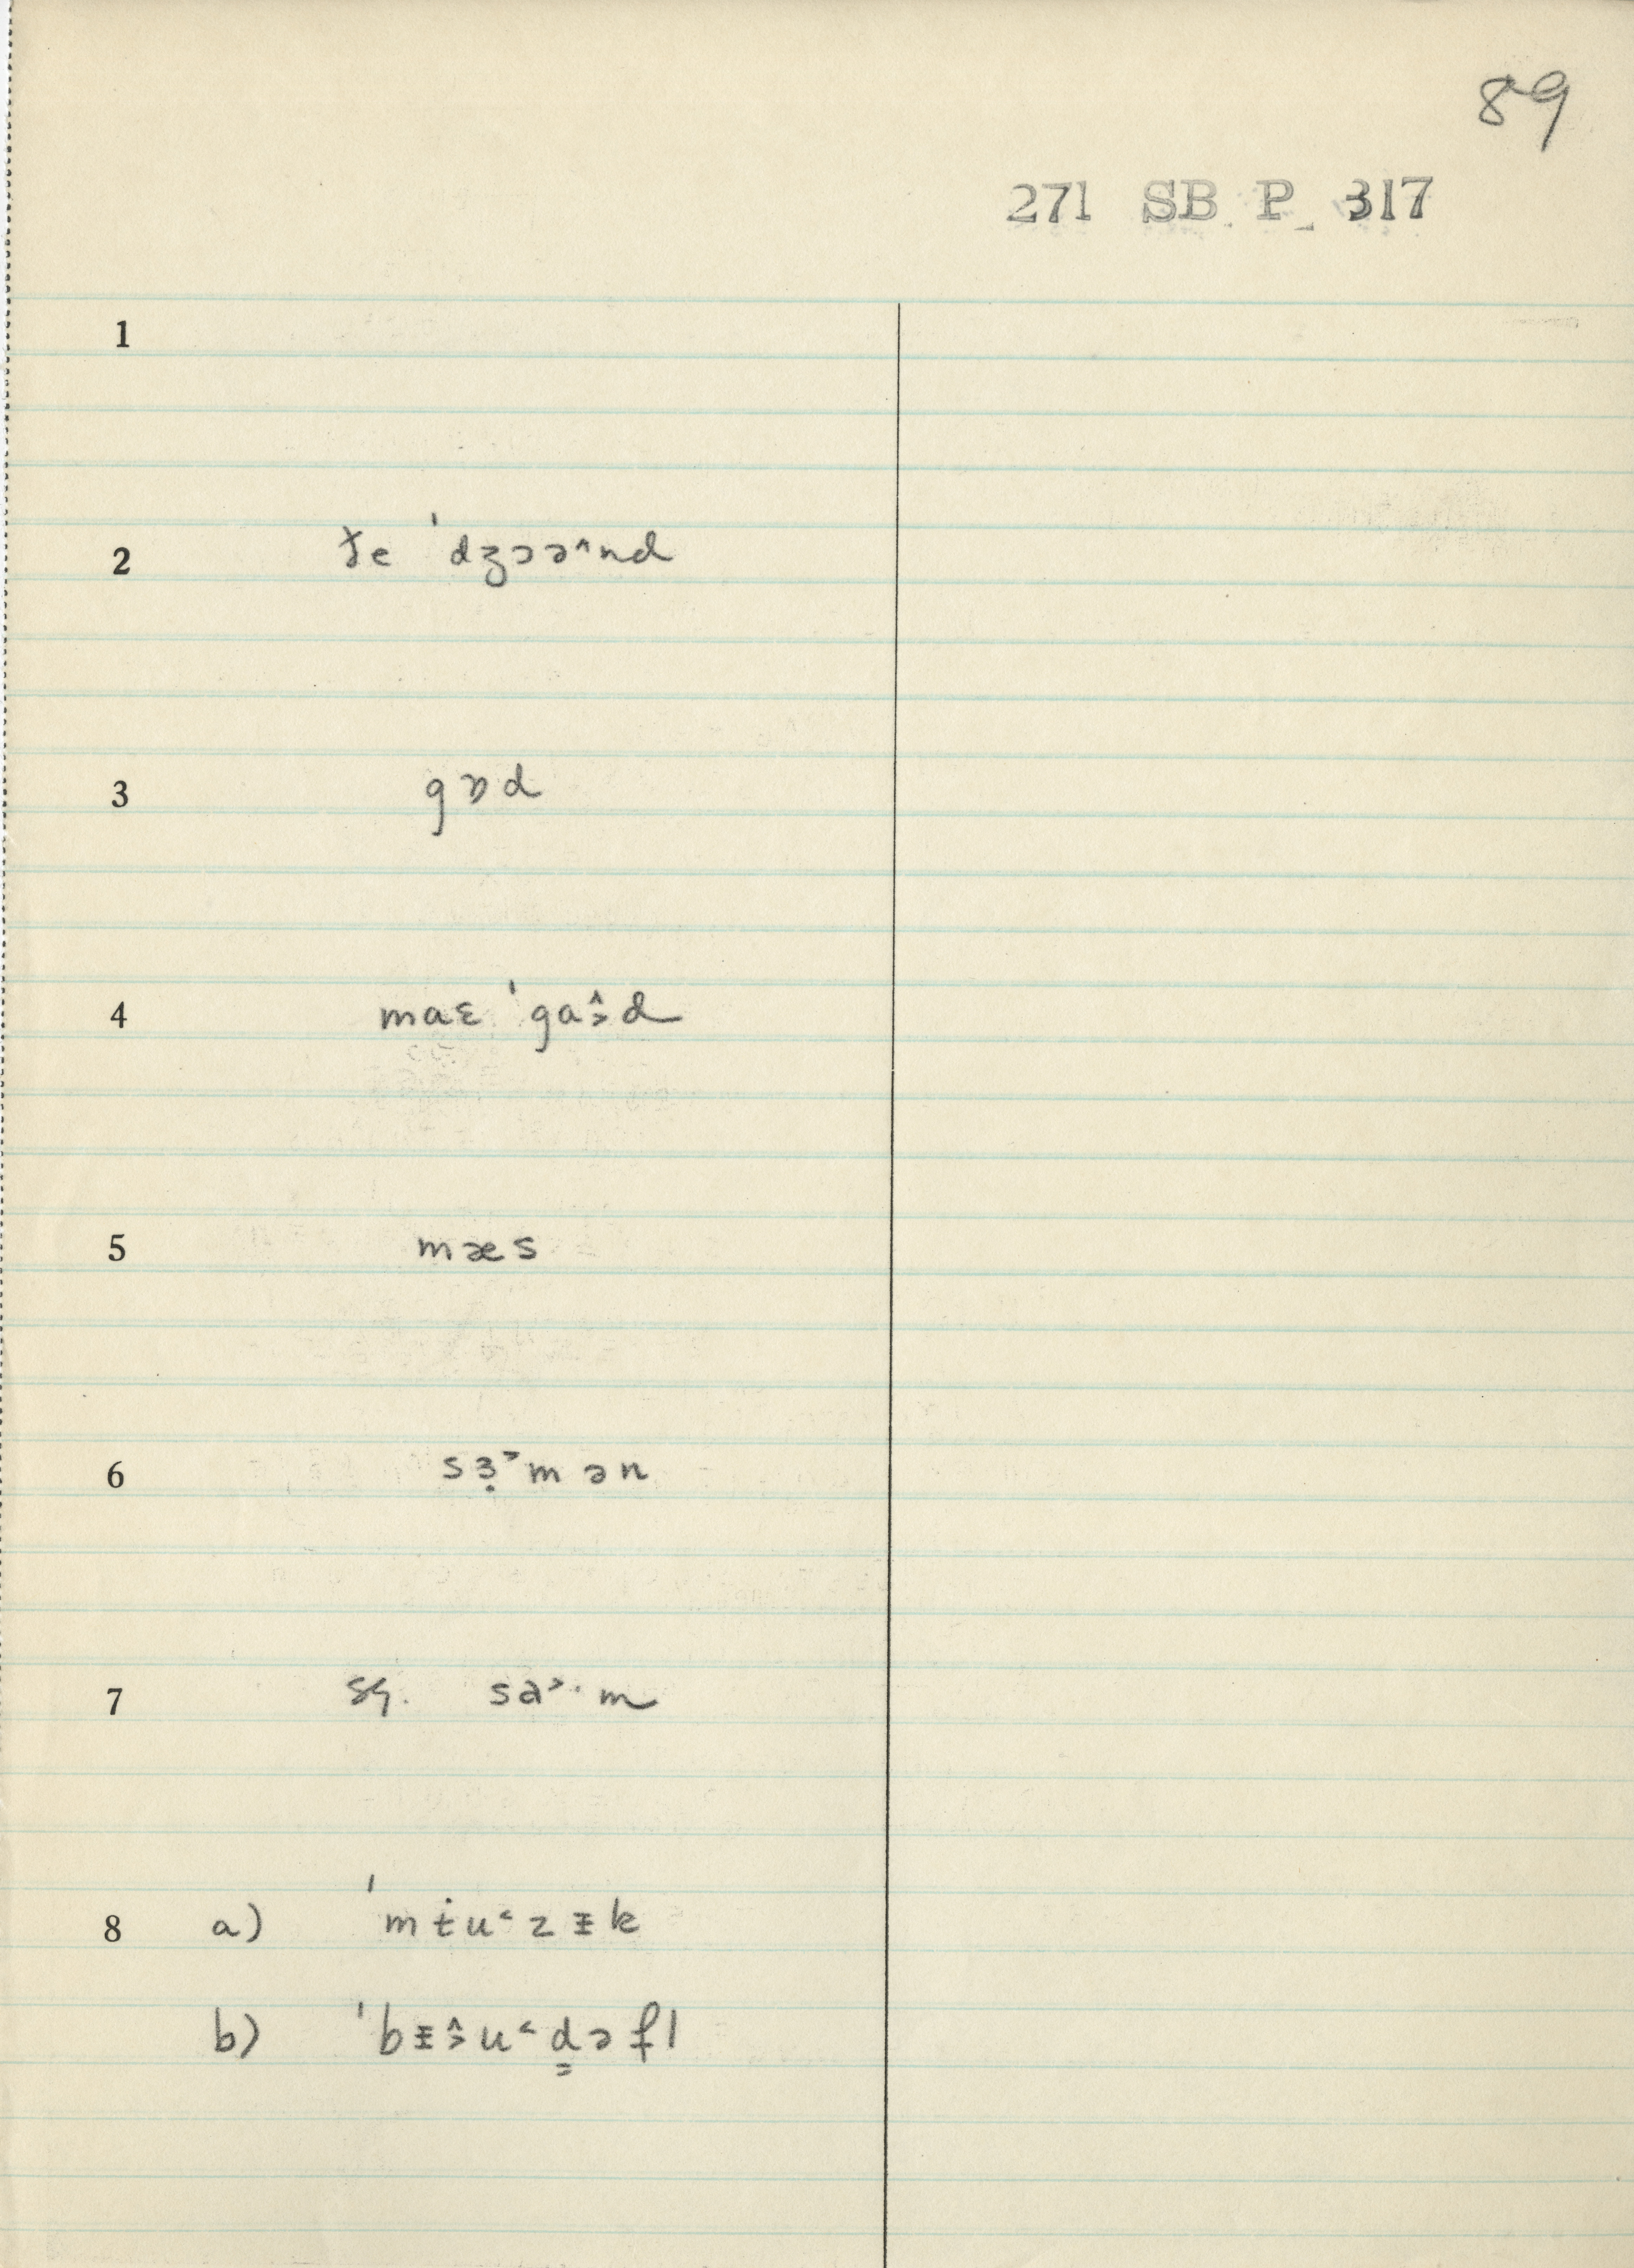 89
271 SB P 317
1
2 ɟe ˈdʒɔə˄nd
3 gɒd
4 maɛ ˈga˄˃d
5 mæs
6 sɜ̣˃mən
7 sg. sa˃·m
8 a) ˈmɨu˂zɪk
b) ˈbɪ˄˃u˂d̳əfl